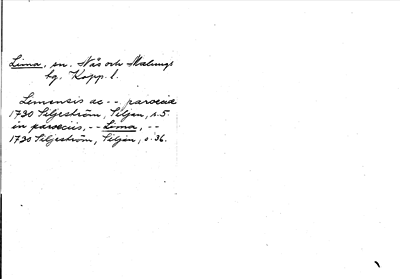 Lima, sn. Nås och Malungs
hg. Kopp. l.
Lemensis ac -- paroeciæ
1730 Siljeström, Siljan, s. 5.
in paroeciis, -- Lima, --
1730 Siljeström, Siljan, s. 36.